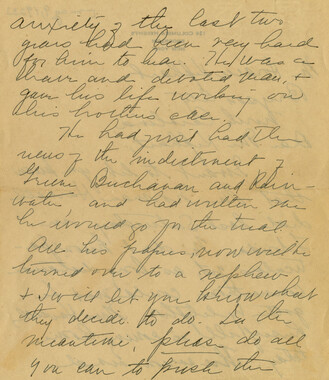 anxiety of the last two
years had been very hard
for him to bear. He was a
brave and devoted man, &
gave his life working on
his brother's case.
He had just had the
news of the indictment of
Greene Buchanan and Rain-
water and had written me
he would go for the trial.
All his papers, now will be
turned over to a nephew
& I will let you know what
they decide to do. In the
meantime, please do all
you can to push the